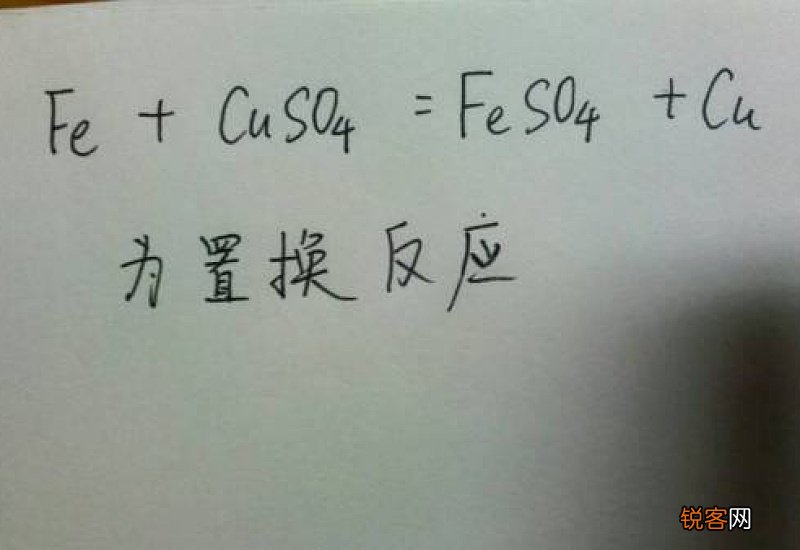 Fe + CuSO₄ = FeSO₄ + Cu
为置换反应
锐客网